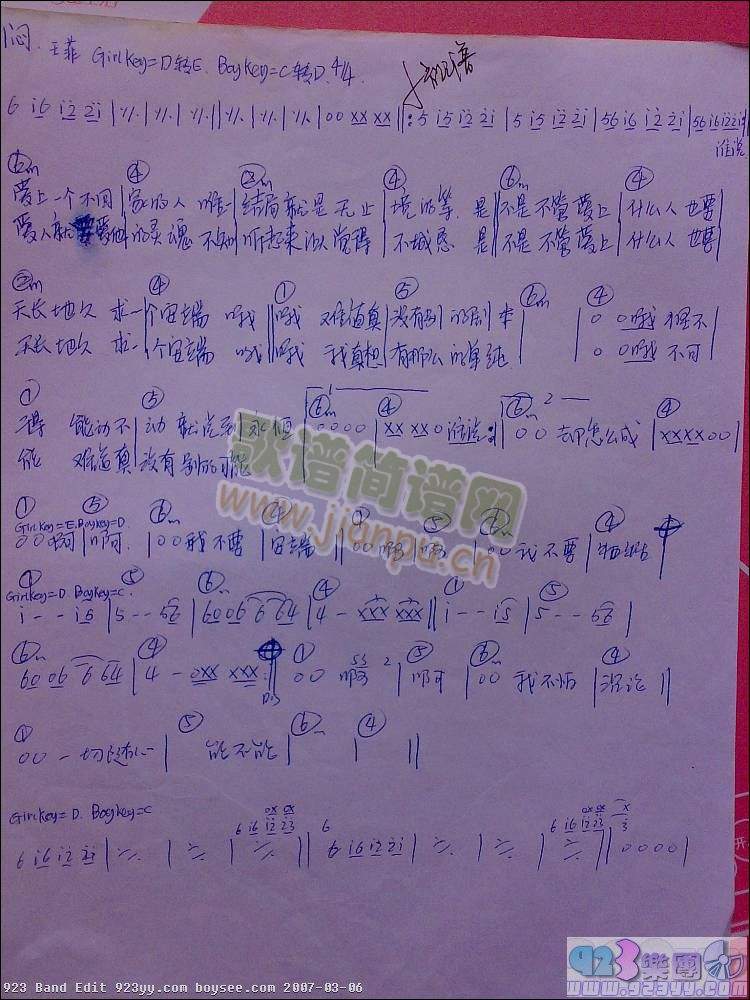 闷. 王菲 Girl Key=D转E. Boy Key=C转D. 4/4.
6 i6 i2 2i |·/.|·/.|·/.|·/.|·/.|·/.| 00 xx xx ||: 5 i5 i2 2i | 5 i5 i2 2i | 56 i6 i2 2i | 56 i6 i2 2i ||
谁说
⑥m ④ ②m ④ ⑥m ④
爱上一个不回|家的人 唯一|结局就是无止|境的等. 是|不是不管爱上|什么人 也要|
爱人就要爱他|的灵魂 不知|听起来 不诚恳 是|不是 不管爱上|什么人 也要|
②m ④ ① ⑤ ⑥m ④
天长地久 求一|个安稳 哦||哦 难道真|没有别 的剧 本| | 00哦 怪不|
天长地久 求一|个安稳 哦||哦 我真想|有那么的单纯 | | 00哦 不可|
① ⑤ ⑥m ④ ⑥m 2 ④
得 能动不|动 就说到 永恒|0000|xx xx0 谁说:||00 却怎么成|xxxx00|
能 难道真|没有别的可能
① ⑤ ⑥m ④ ① ⑤ ⑥m ④
Girl Key=E. Boy Key=D.
00啊|啊 |00我不要|安稳||00啊|啊 |00 我不要|牺牲|
① ⑤ ⑥m ④ ① ⑤
Girl Key=D. Boy Key=C.
i - - i5 |5 - - 56 |6006 6 64 |4 - xxx xxx || i - - i5 |5 - - 56 |
⑥m ④ ① ⑤ ⑥m ④
60 06 6 64 |4 - 0xx xxx :|| 00 啊 |啊 |00 我不怕|沉沦 ||
① ⑤ ⑥m ④
00 一切随心| 能不能| | ||
Girl Key=D. Boy Key=C
6 i6 i2 2i |·/.|·/.|·/.|| 6 i6 i2 2i |·/.|·/.|·/.|| 0000|
歌谱简谱网
www.jianpu.cn
923 Band Edit 923yy.com boysee.com 2007-03-06
923樂團
www.923yy.com